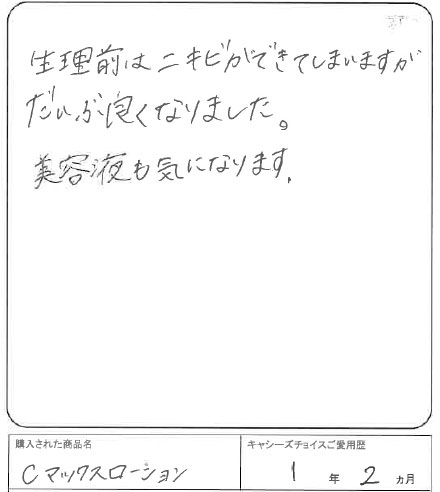 生理前はニキビができてしまいますが
だいぶ良くなりました。
美容液も気になります.
購入された商品名
Cマックスローション
キャシーズチョイスご愛用歴
1年2ヵ月